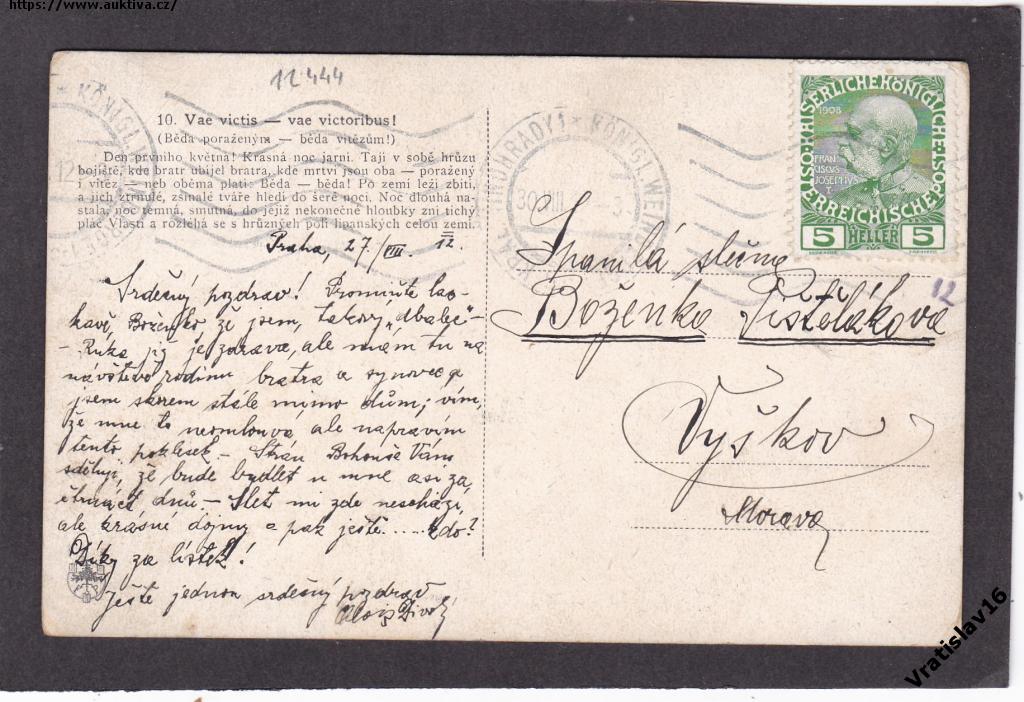 https://www.auktiva.cz/
12444
10. Vae victis — vae victoribus!
(Běda poraženým — běda vítězům!)
Den prvního května! Krásná noc jarní. Tají v sobě hrůzu
bojiště, kde bratr ubíjel bratra, kde mrtví jsou oba — poražený
i vítěz — neb oběma platí: Běda — běda! Po zemi leží zbití,
a jich ztrnulé, zsinalé tváře hledí do šeré noci. Noc dlouhá na-
stala, noc temná, smutná, do jejíž nekonečné hloubky zní tichý
pláč Vlasti a rozléhá se s hrůzných polí lipanských celou zemí.
Praha, 27/VIII. 12.
Srdečný pozdrav! Promiňte las-
kavě, Boženko, že jsem takový „dbalec"-
- Ruka již je zdráva, ale mám tu na
návštěvě rodinu bratra a synovce a
jsem skorem stále mimo dům; vím,
že mne to neomlouvá, ale napravím
tento poklesek. - Strán Bohouše Vám
sděluji, že bude bydlet u mne asi za
čtrnáct dnů. - Slet mi zde neschází,
ale krásné dojmy a pak ještě ..... kdo?
Díky za lístek!
Ještě jednou srdečný pozdrav
Alois Divoký
KÖNIGL.
VINOHRADY 1 * KÖNIGL. WEIN
30 VIII
KAISERLICHE KÖNIGLICHE
ÖSTERREICHISCHE POST
1908
FRAN
CISCUS
JOSEPHUS
I
5 HELLER 5
Spanilá slečna
Boženka Pištěláková
12
Vyškov
Morava
Vratislav16